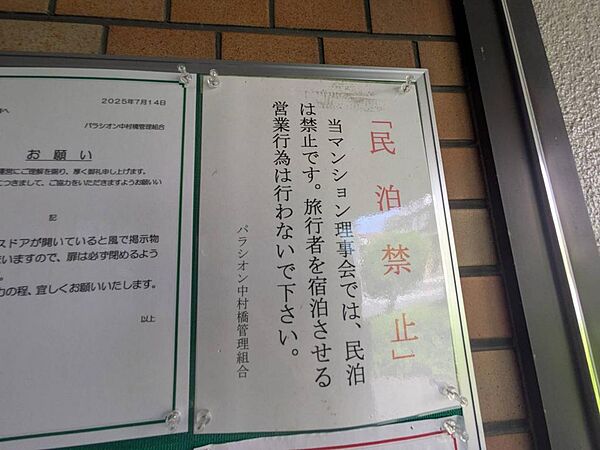 2025年7月14日
パラシオン中村橋管理組合
お願い
運営にご理解を賜り、厚く御礼申し上げます。
につきまして、ご協力をいただきますようお願いい
記
スドアが開いていると風で掲示物
いますので、扉は必ず閉めるよう
力の程、宜しくお願いいたします。
以上
「民泊禁止」
当マンション理事会では、民泊
は禁止です。旅行者を宿泊させる
営業行為は行わないで下さい。
パラシオン中村橋管理組合